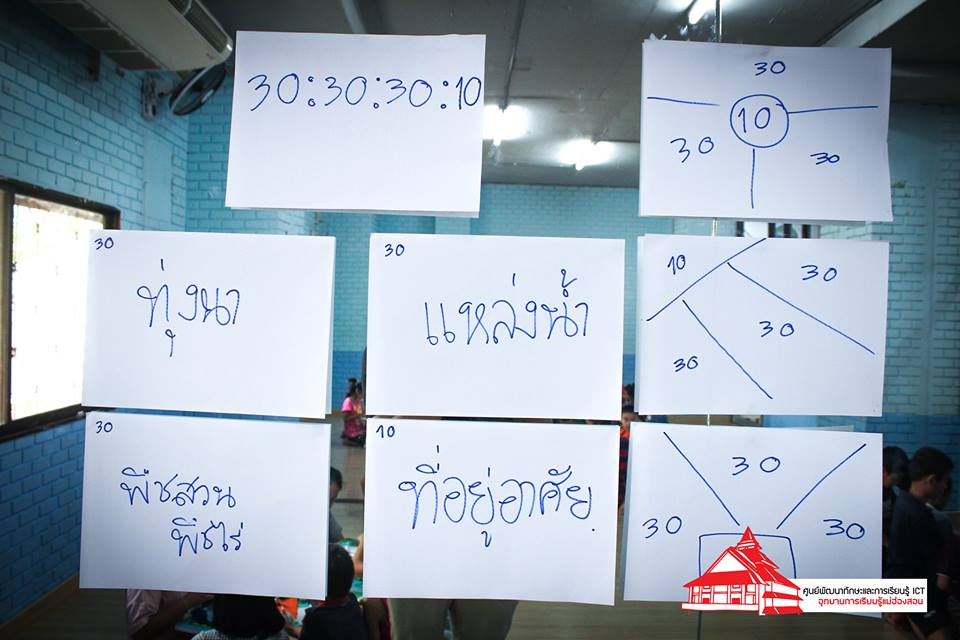 30:30:30:10
30
10
30
30
30
ทุ่งนา
30
แหล่งน้ำ
10
30
30
30
30
พืชสวน
พืชไร่
10
ที่อยู่อาศัย
30
30
30
ศูนย์พัฒนาทักษะและการเรียนรู้ ICT
อุทยานการเรียนรู้แม่ฮ่องสอน